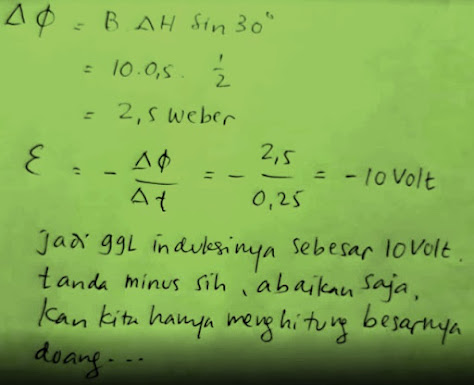 Δφ = B. ΔH Sin 30°
= 10.0,5. 1/2
= 2,5 Weber
ε = - Δφ/Δt = - 2,5/0,25 = -10 Volt
jadi ggl induksinya sebesar 10 Volt.
tanda minus sih, abaikan saja,
kan kita hanya menghitung besarnya
doang...